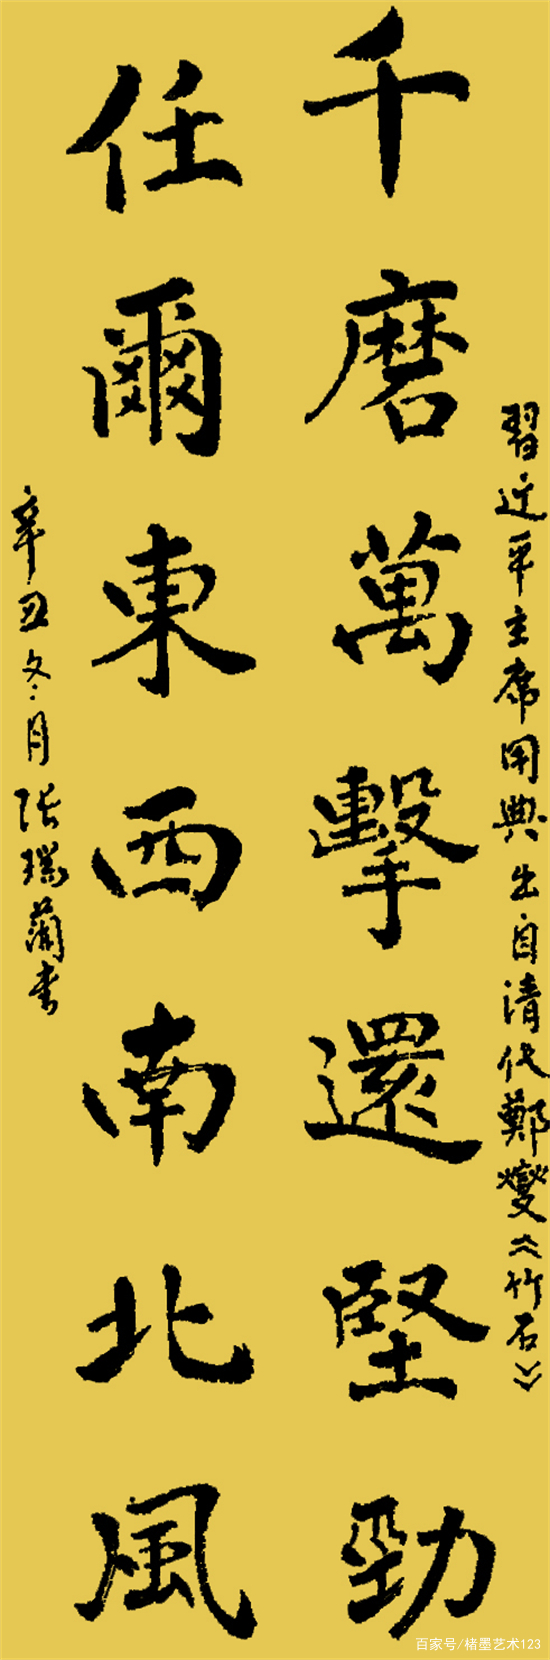 習近平主席用典出自清代鄭燮《竹石》
千磨萬擊還堅勁
任爾東西南北風
辛丑冬月張瑞蘭書
百家号/楮墨艺术123